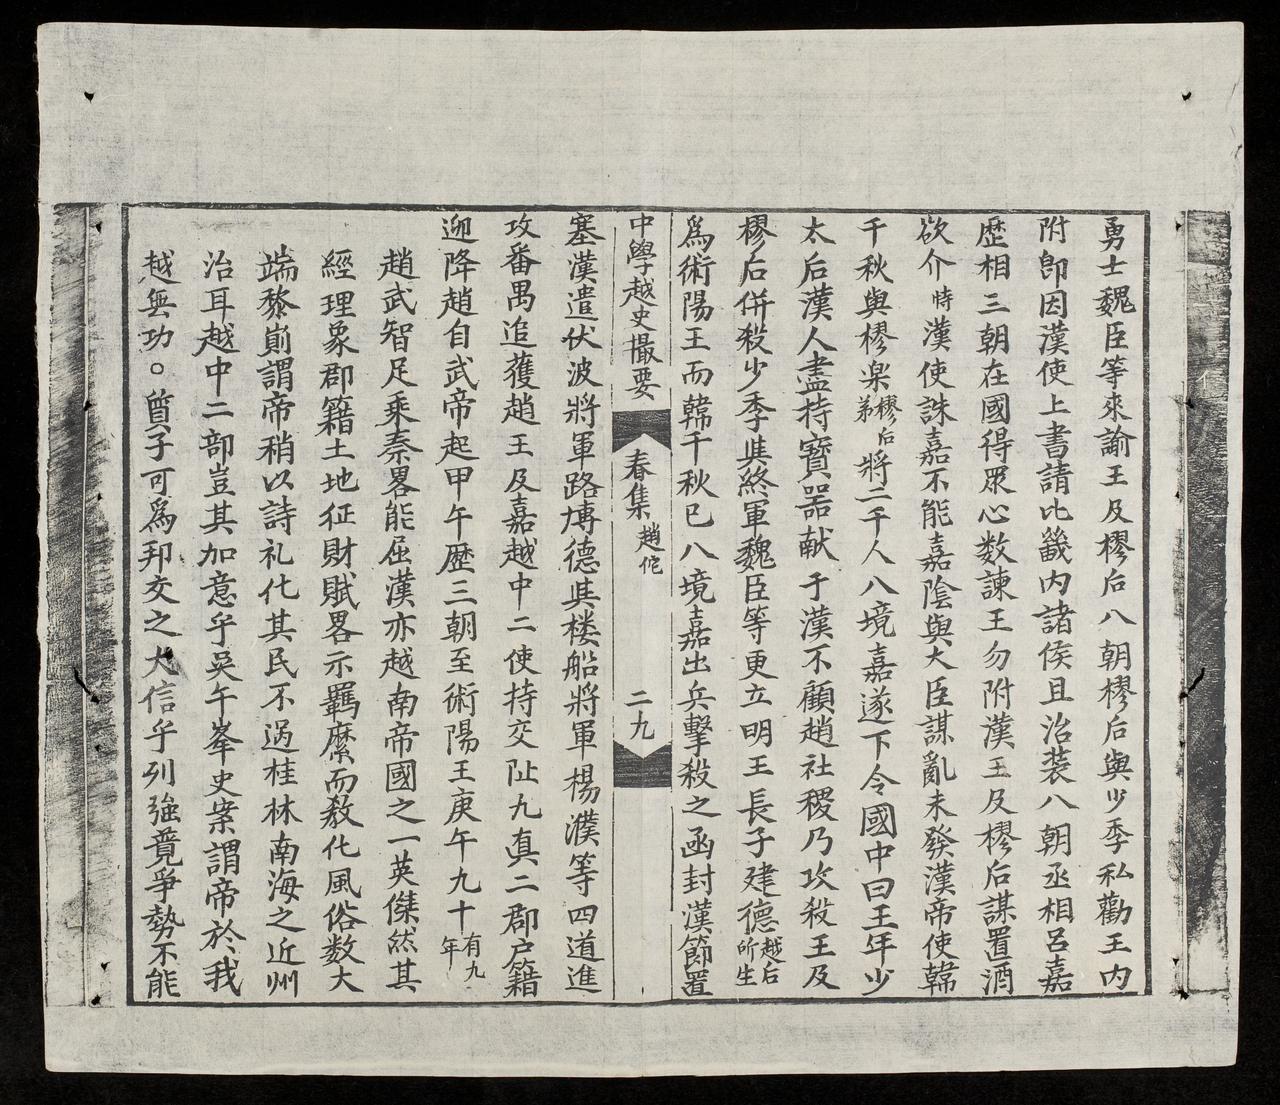 勇士魏臣等來諭王及樛后入朝樛后與少季私勸王内
附卽因漢使上書請比畿内諸侯且治装入朝丞相呂嘉
歷相三朝在國得眾心数諫王勿附漢王及樛后謀置酒
欲介時漢使誅嘉不能嘉陰與大臣謀亂未發漢帝使韓
千秋與樛楽樛后弟將二千人入境嘉遂下令國中曰王年少
太后漢人盡持寳器献于漢不顧趙社稷乃攻殺王及
樛后併殺少季其終軍魏臣等更立明王長子建德越后所生
爲術陽王而韓千秋已入境嘉出兵擊殺之函封漢節置
中學越史撮要 春集 趙佗 二九
塞漢遣伏波將軍路博德其楼船將軍楊濮等四道進
攻番禺追獲趙王及嘉越中二使持交阯九真二郡户籍
迎降趙自武帝起甲午歷三朝至術陽王庚午九十有九年
趙武智足乘秦畧能屈漢亦越南帝國之一英傑然其
經理象郡籍土地征財賦畧示羈縻而教化風俗数大
端黎嵩謂帝稍以詩礼化其民不過桂林南海之近州
治耳越中二部豈其加意乎吳午峯史案謂帝於我
越無功。質子可爲邦交之大信乎列強競爭勢不能